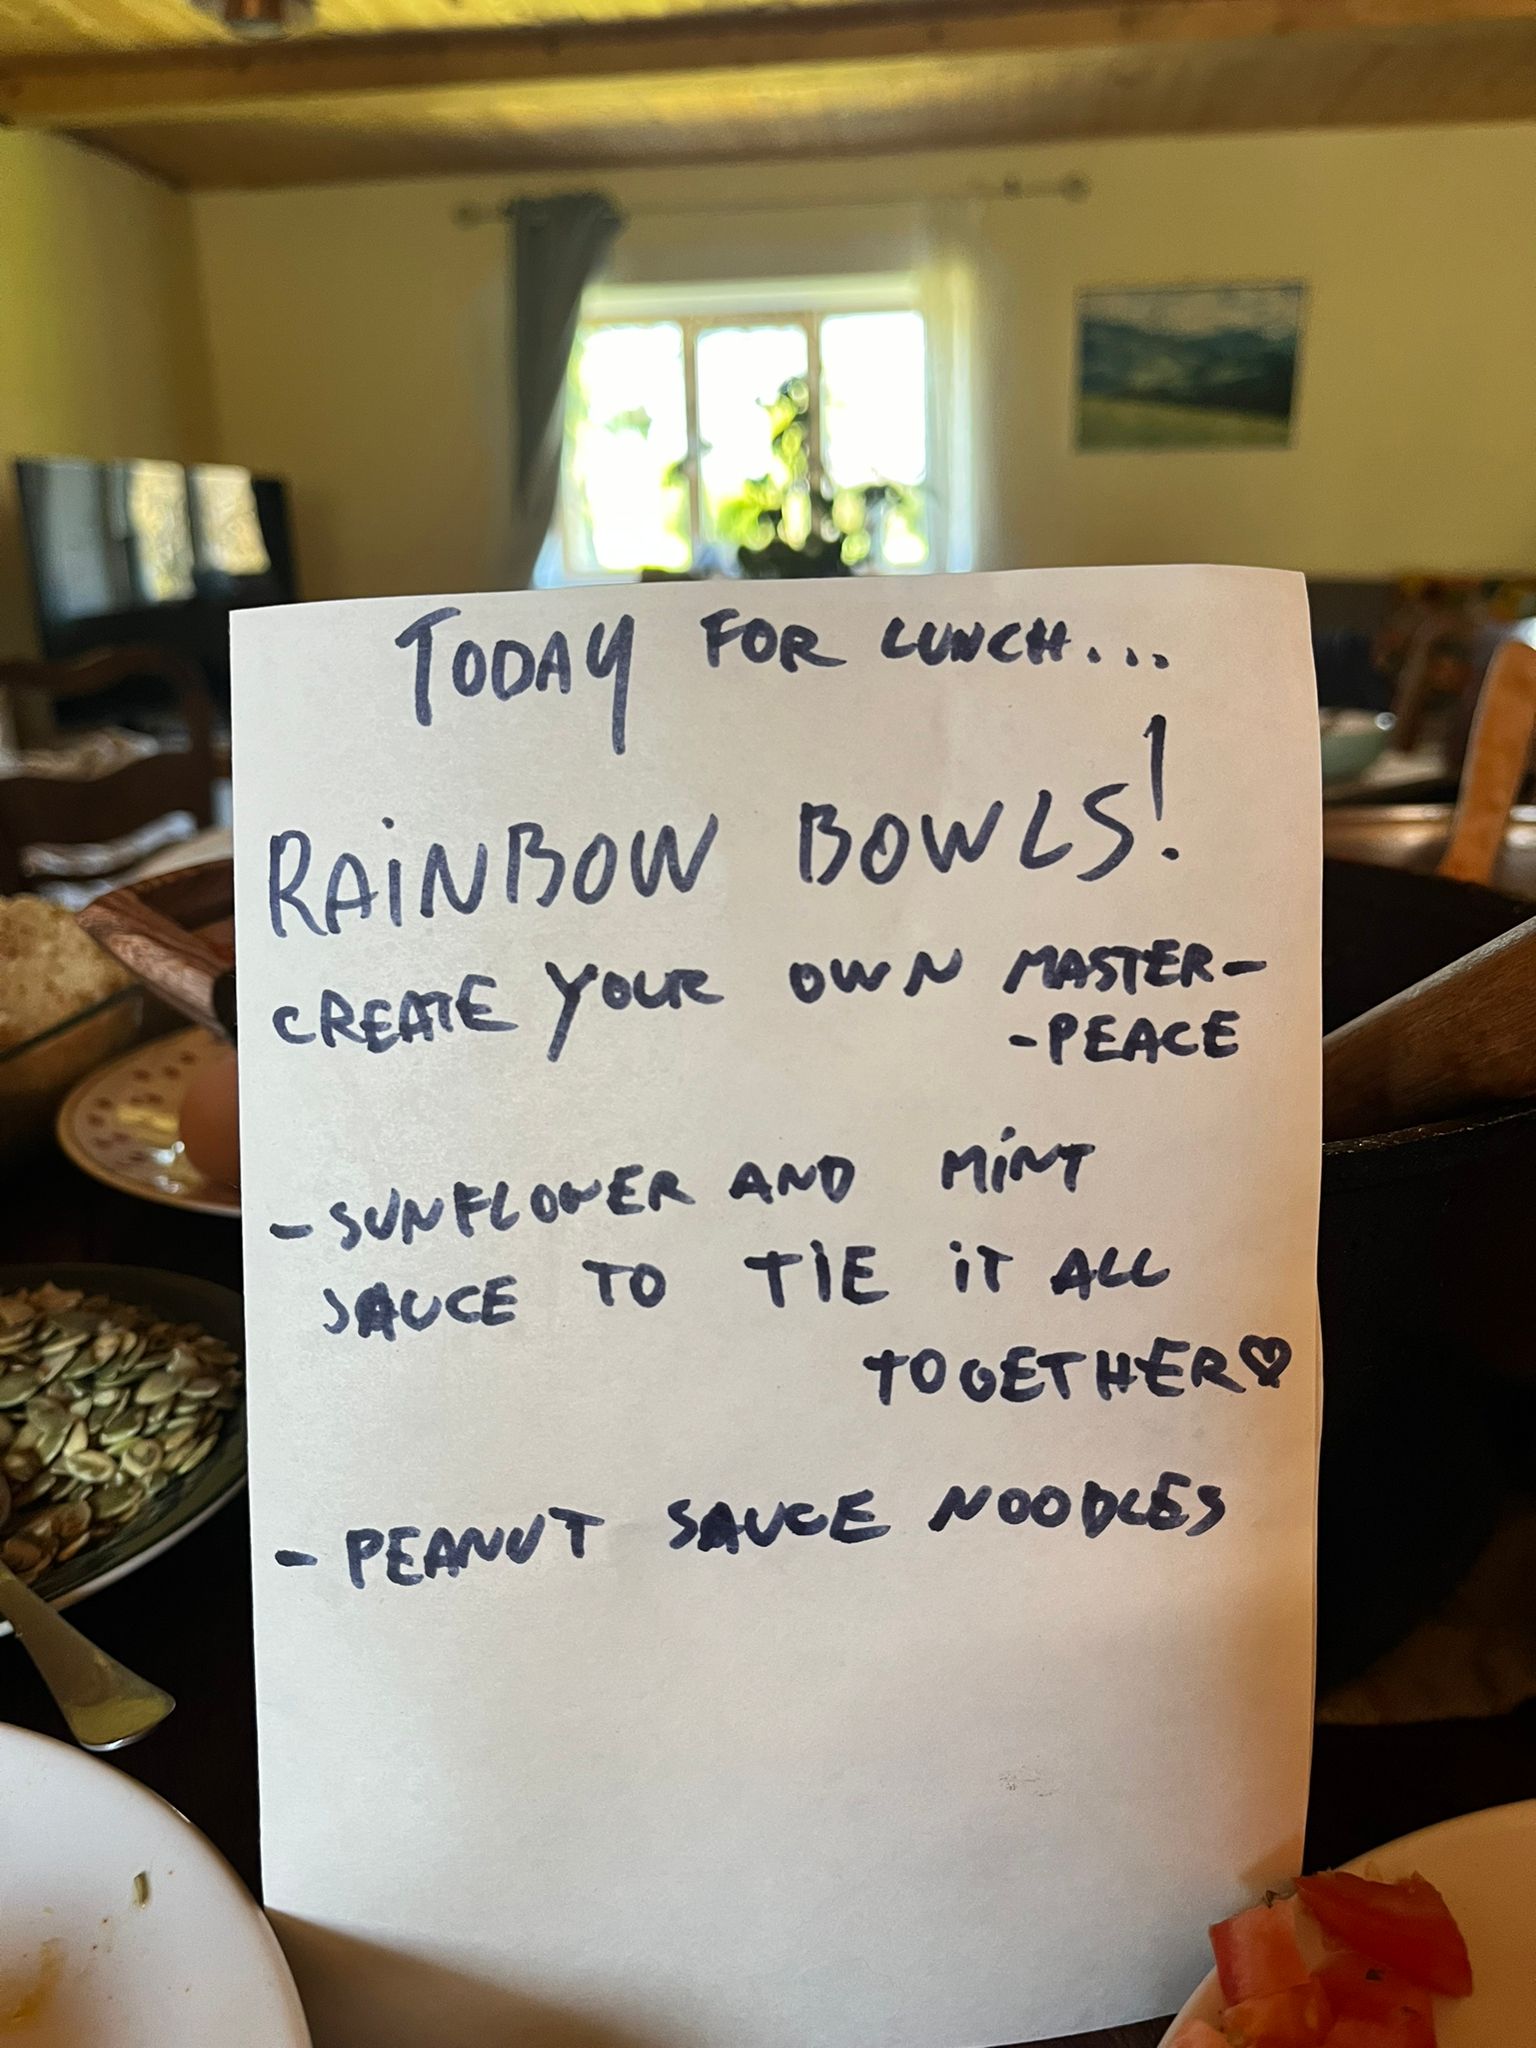 TODAY FOR LUNCH...
RAINBOW BOWLS!
CREATE YOUR OWN MASTER-
-PEACE
- SUNFLOWER AND MINT
SAUCE TO TIE IT ALL
TOGETHER♡
- PEANUT SAUCE NOODLES